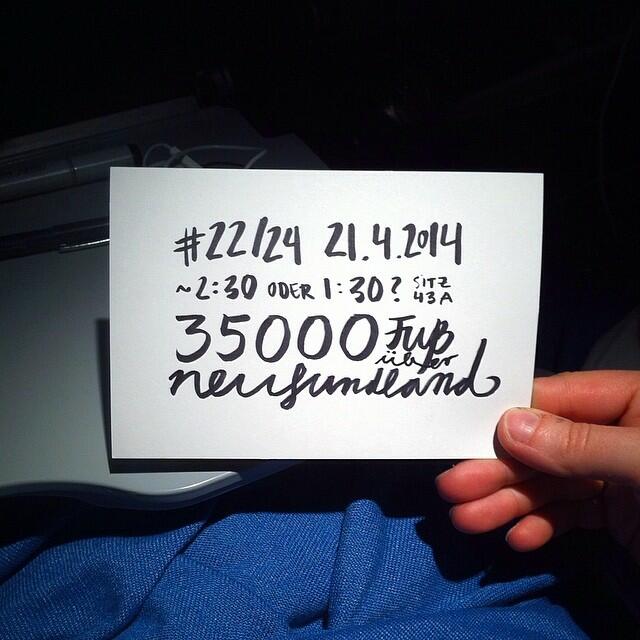 #22/24 21.4.2014
~2:30 ODER 1:30? SITZ 43A
35000 Fuß über
neufundland